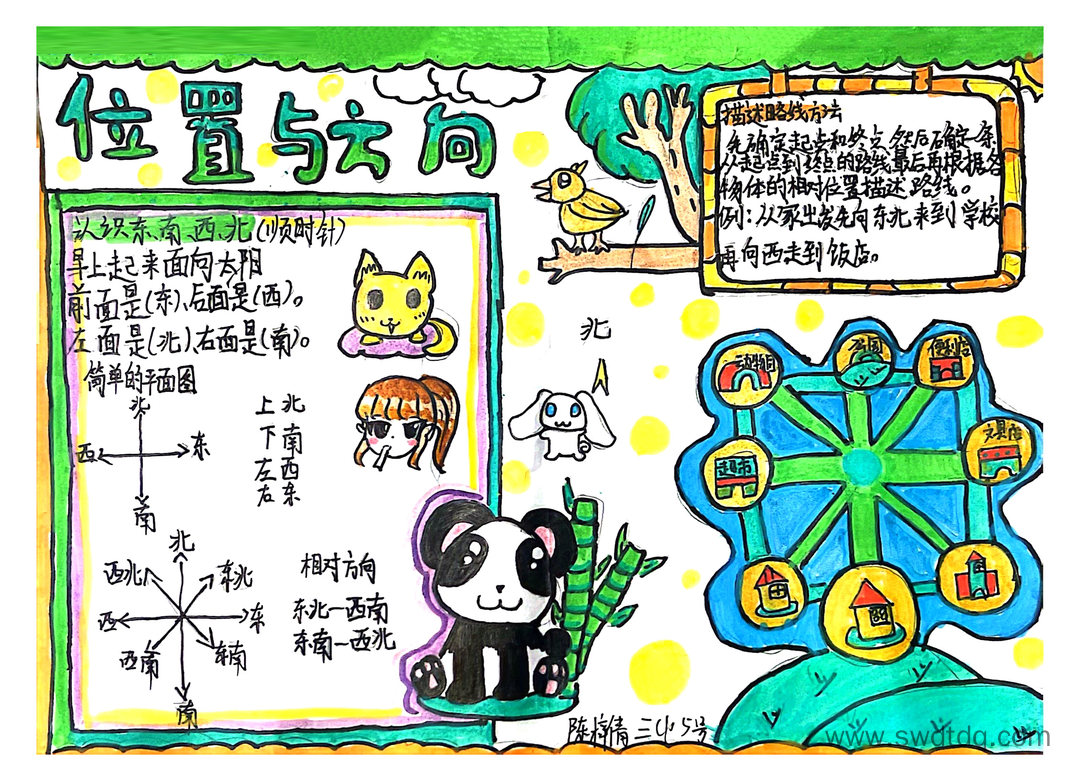 位置与方向
认识东、南、西、北(顺时针)
早上起来面向太阳
前面是(东)、后面是(西)。
左面是(北)、右西是(南)。
简单的平面图
北
西 东
南
上北
下南
左西
右东
北
西北 东北
西 东
西南 东南
南
相对方向
东北—西南
东南—西北
描述路线方法
先确定起点和终点,然后确定一条
从起点到终点的路线,最后再根据各
物体的相对位置描述路线。
例:从家出发先向东北来到学校
再向西走到饭店。
北
动物园
公园
便利店
超市
文具店
三(4)5号
www.swdtdq.com